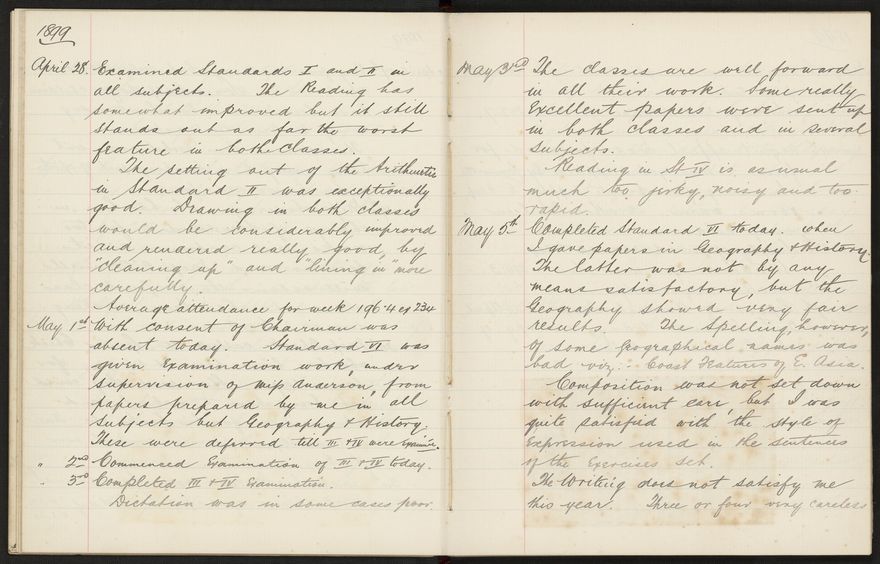 1899
April 28. Examined Standards I and II in
all subjects. The Reading has
somewhat improved but it still
stands out as far the worst
feature in both classes.
The setting out of the Arithmetic
in Standard II was exceptionally
good. Drawing in both classes
would be considerably improved
and rendered really good, by
"cleaning up" and "lining in" more
carefully.
Average attendance for week 196.4 of 234
May 1st With consent of Chairman was
absent today. Standard VI was
given Examination work, under
supervision of Miss Anderson, from
papers prepared by me in all
subjects but Geography & History.
These were deferred till III & IV were Examined.
" 2nd Commenced Examination of III & IV today.
" 3rd Completed III & IV Examination.
Dictation was in some cases poor.
May 3rd The classes are well forward
in all their work. Some really
Excellent papers were sent up
in both classes and in several
subjects.
Reading in St IV is, as usual
much too jerky, noisy and too
rapid.
May 5th Completed Standard VI today. when
I gave papers in Geography & History.
The latter was not by any
means satisfactory, but the
Geography showed very fair
results. The Spelling, however,
of some geographical names was
bad viz. Coast Features of E. Asia.
Composition was not set down
with sufficient care, but I was
quite satisfied with the style of
Expression used in the sentences
of the Exercises set.
The Writing does not satisfy me
this year. Three or four very careless